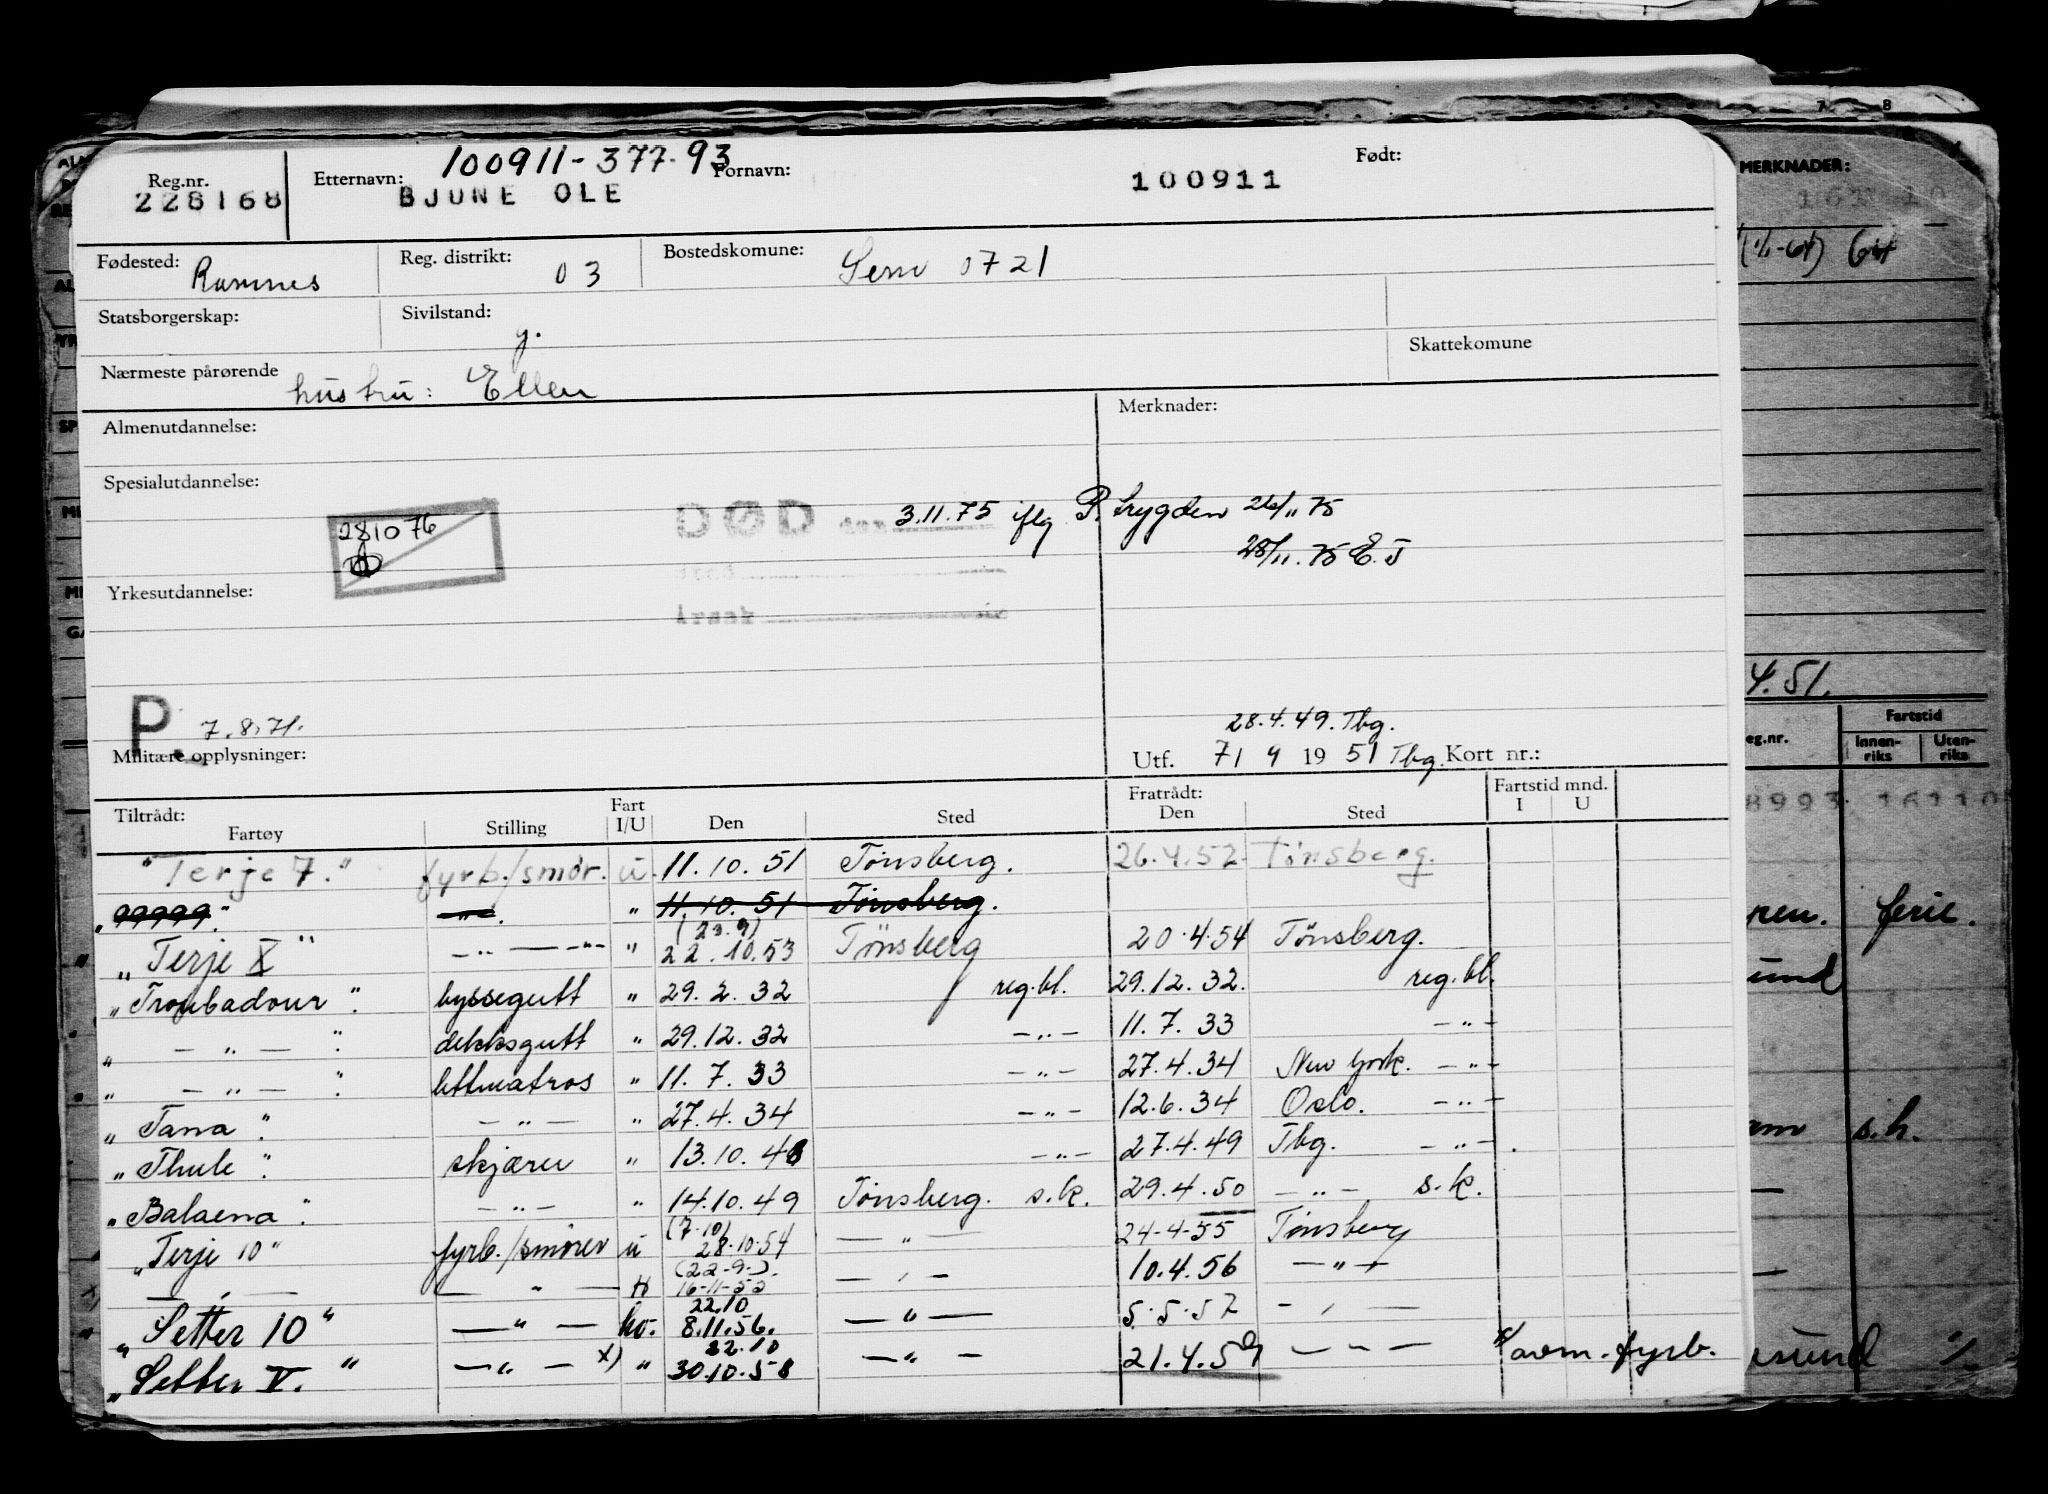 7 8
100911-377-93
Reg.nr. Etternavn: Fornavn: Født:
228168 BJUNE OLE 100911
Fødested: Ramnes Reg. distrikt: 03 Bostedskomune: Sem 0721
Statsborgerskap: Sivilstand: g.
Skattekomune
Nærmeste pårørende hustru: Ellen
Almenutdannelse: Merknader:
Spesialutdannelse:
281076 DØD den 3.11.75 iflg P. trygden 26/11 75
28/11.75 E.J
sted
Yrkesutdannelse:
årsak
P. 7.8.71.
28.4.49. Tbg.
Militære opplysninger: Utf. 7/9 1951 Tbg. Kort nr.:
Tiltrådt: Fart Fratrådt: Fartstid mnd.
Fartøy Stilling I/U Den Sted Den Sted I U
"Terje 7." fyrb./smør. u. 11.10.51 Tønsberg. 26.4.52. Tønsberg.
" 11.10.51 Tønsberg.
(23.9)
"Terje X" -"- — -"- " 22.10.53 Tønsberg 20.4.54 Tønsberg.
"Troubadour". byssegutt " 29.2.32 reg.bl. 29.12.32. reg.bl.
" - " - ". dekksgutt " 29.12.32 -"- 11.7.33 -"-
" - " - ". lettmatros " 11.7.33 -"- 27.4.34 New York. -"-
"Tana". -"- " 27.4.34 -"- 12.6.34 Oslo. -"-
"Thule". skjærer " 13.10.48 -"- 27.4.49 Tbg. -"-
"Balaena". -"- " 14.10.49 Tønsberg. s.k. 29.4.50 -"- s.k.
(7.10)
"Terje 10" fyrb./smører u 28.10.54 -"- 24-4-55 Tønsberg
(22-9-).
- " - - " - 16-11-55 - " - 10.4.56 -"-
22.10
"Setter 10" -"- ho. 8.11.56. -"- 5.5.57 - " -
22.10
"Setter V." -"- x) " 30.10.58 -"- 21.4.59 - " - x/ avm. fyrb.
MERKNADER:
(1/1-64) 64
4.51.
Fartstid
eg.nr. Innen-riks Uten-riks
8993
ren. ferie.
und
s.h.
sund